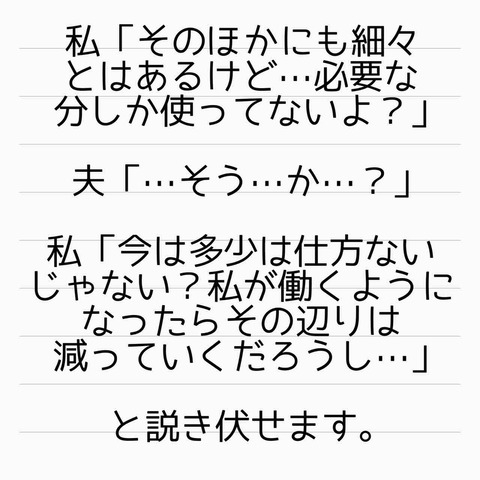 私「そのほかにも細々
とはあるけど…必要な
分しか使ってないよ？」
夫「…そう…か…？」
私「今は多少は仕方ない
じゃない？私が働くように
なったらその辺りは
減っていくだろうし…」
と説き伏せます。